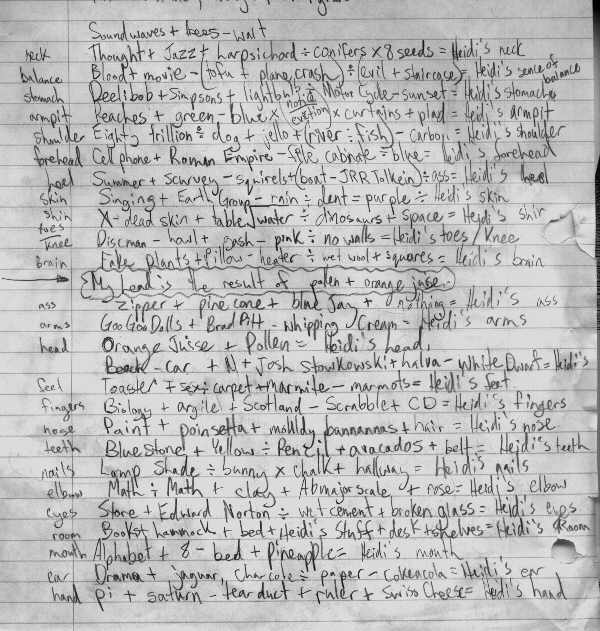 Soundwaves + trees - wait
neck Thought + Jazz + harpsichord ÷ conifers × 8 seeds = Heidi's neck
balance Blood + movie - (tofu + plane crash) ÷ (evil + staircase) = Heidi's sense of balance
stomach Beelibob + Simpsons + lightbulb ÷ Motor Cycle - sunset = Heidi's stomach
armpit Peaches + green - blue × not a eviction × curtains + plad = Heidi's armpit
shoulder Eighty trillion ÷ dog + jello + (river ÷ fish) - carbon = Heidi's shoulder
forehead Cell phone + Roman Empire - file cabinate ÷ blue = Heidi's forehead
heel Summer + Scurvey - squirels + (boat - JRR Tolkein) ÷ ass = Heidi's heel
skin Singing + Earth Group - rain ÷ dent = purple ÷ Heidi's skin
shin X - dead skin + table / water ÷ dinosaurs + space = Heidi's shin
toes knee Discman - howl + sash - pink ÷ no walls = Heidi's toes / Knee
Brain Fake plants + Pillow - heater ÷ wet wool + squares = Heidi's brain
My head is the result of pollen + orange juse.
ass zipper + pine cone + blue Jay + nothing = Heidi's ass
arms Goo Goo Dolls + Brad Pitt - Whipping Cream = Heidi's arms
head Orange Juise + Pollen = Heidi's head,
car + N + Josh Stowkowski + halva - White Dwarf = Heidi's
feet Toaster + carpet + marmite - marmots = Heidi's feet
fingers Biology + argile + Scotland - Scrabble + CD = Heidi's fingers
nose Paint + poinsetta + mouldy bannannas + hair = Heidi's nose
teeth Bluestone + Yellow ÷ Penzil + avacados + belt = Heidi's teeth
nails Lamp Shade ÷ bunny × chalk + hallway = Heidi's nails
elbow Math ÷ Math + clay + Ab major scale + rose = Heidi's elbow
eyes Store + Edward Norton ÷ wet cement + broken glass = Heidi's eyes
room Books + hammock + bed + Heidi's Stuff + desk + shelves = Heidi's Room
mouth Alphabet + 8 - bed + Pineapple = Heidi's mouth
ear Drama + jaguar, charcole ÷ paper - cokeacola = Heidi's ear
hand pi + saturn - tear duct + ruler + Swiss Cheese = Heidi's hand